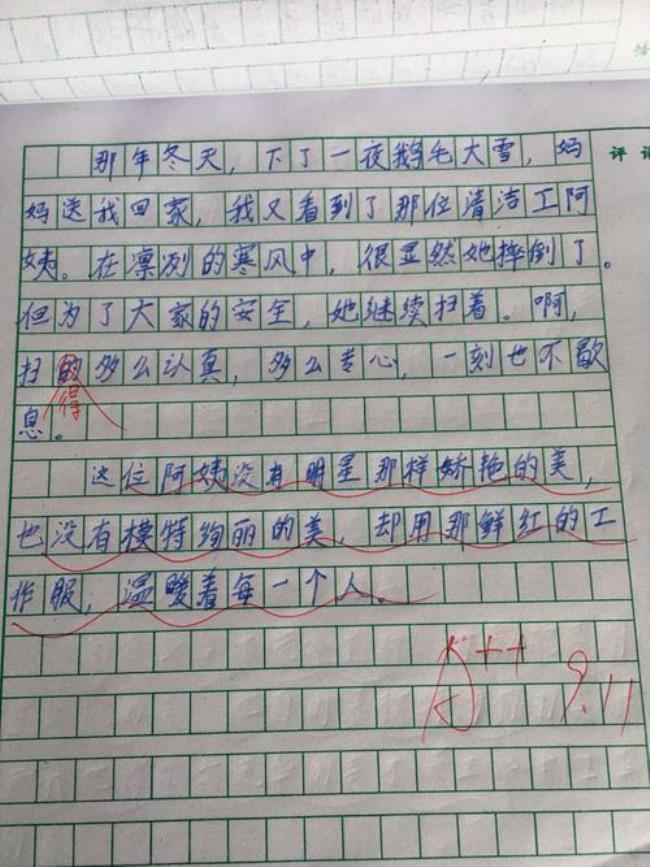 那年冬天，下了一夜鹅毛大雪，妈
妈送我回家，我又看到了那位清洁工阿
姨。在凛冽的寒风中，很显然她摔倒了。
但为了大家的安全，她继续扫着。啊，
扫的多么认真，多么专心，一刻也不歇
得
息。
这位阿姨没有明星那样娇艳的美，
也没有模特绚丽的美，却用那鲜红的工
作服，温暖着每一个人。
A++ 9.11
评